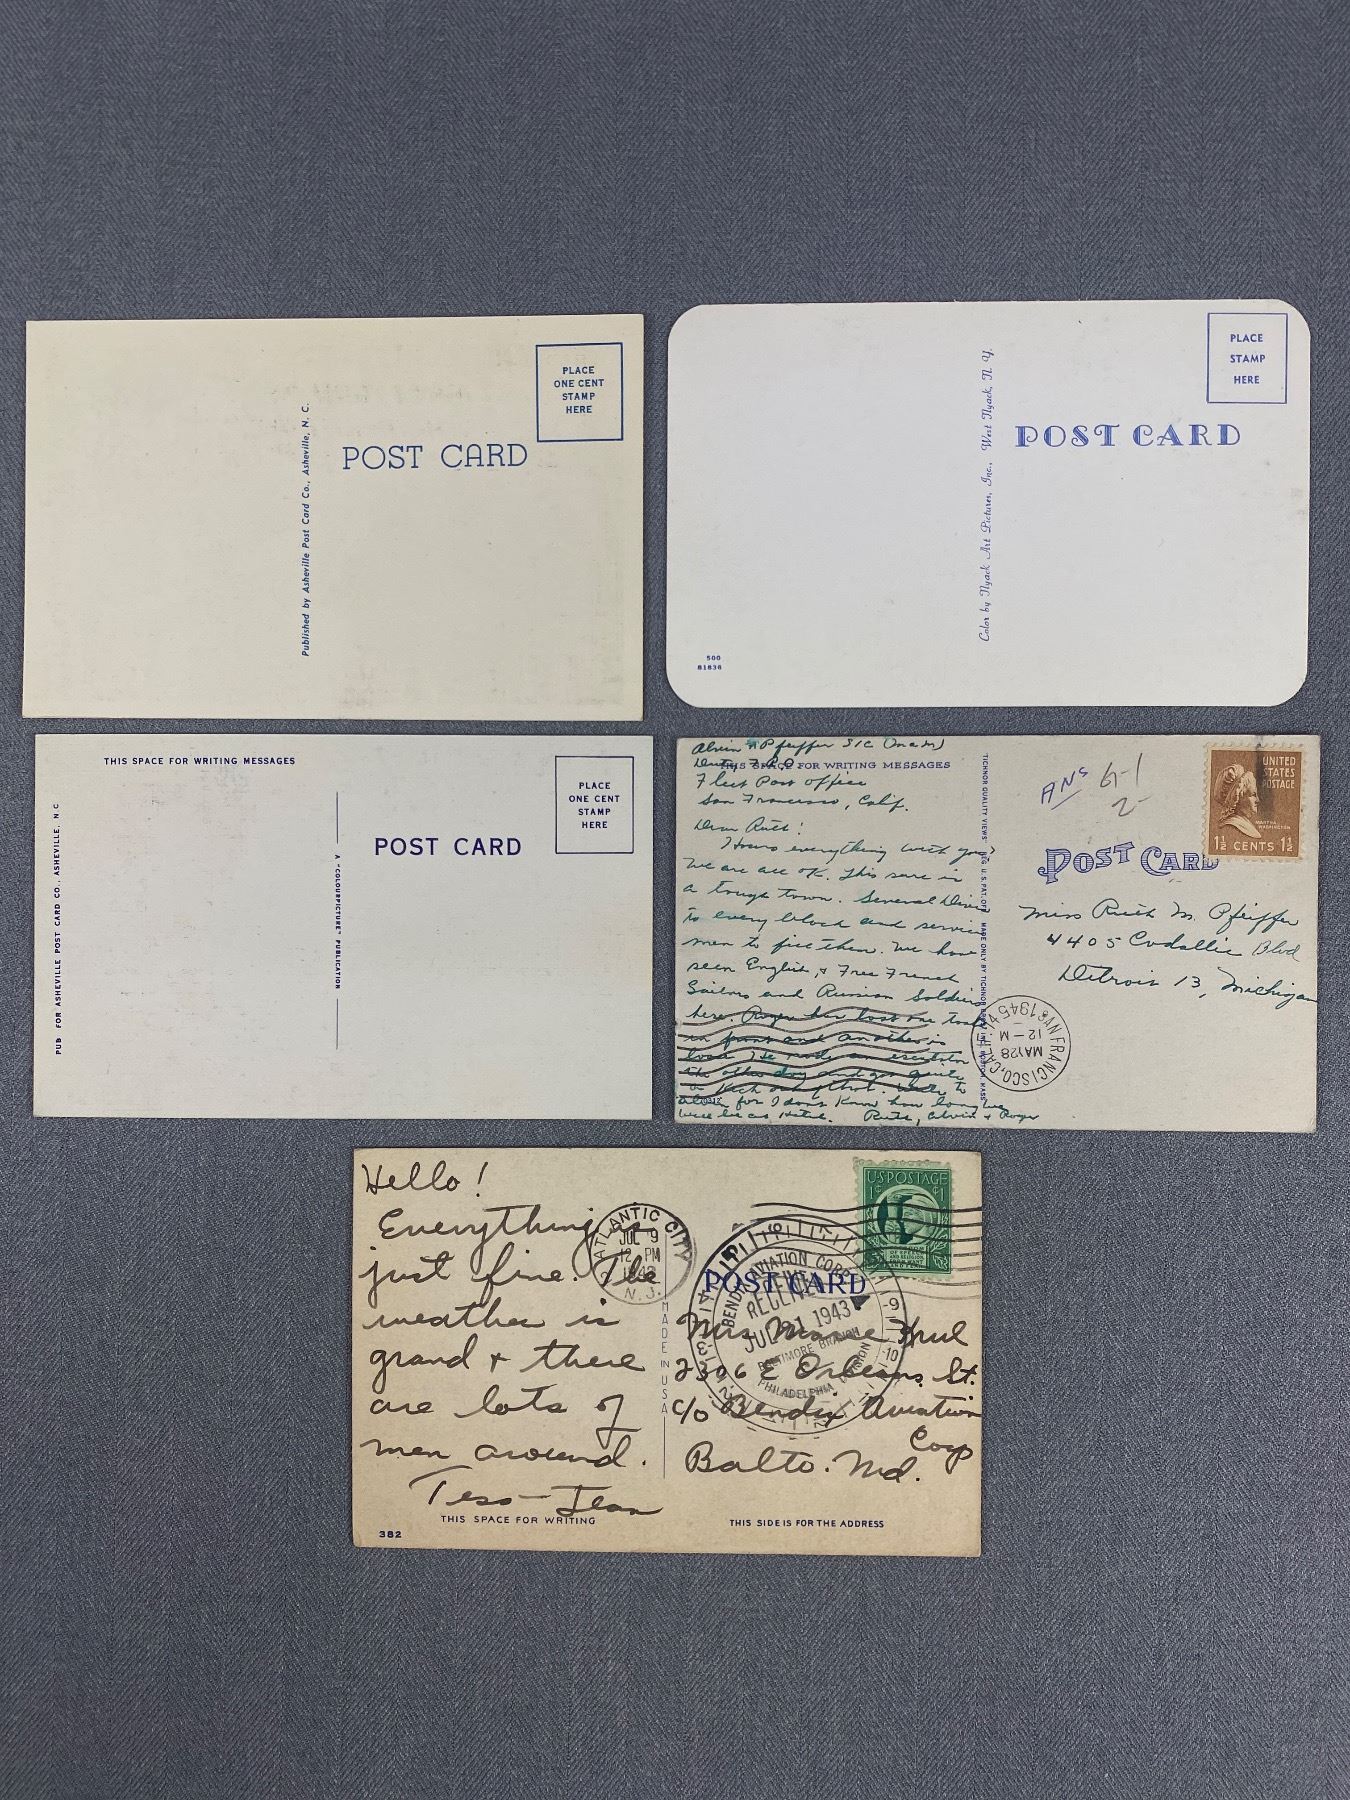 PLACE
ONE CENT
STAMP
HERE
POST CARD
Published by Asheville Post Card Co., Asheville, N. C.
PLACE
STAMP
HERE
POST CARD
Color by Nyack Art Pictures, Inc., West Nyack, N. Y.
500
81836
THIS SPACE FOR WRITING MESSAGES
PLACE
ONE CENT
STAMP
HERE
POST CARD
PUB FOR ASHEVILLE POST CARD CO. ASHEVILLE, N.C
A "COLOURPICTURE" PUBLICATION
Alvin Pfeiffer S1C
THIS SPACE FOR WRITING MESSAGES
Fleet Post office
San Francisco, Calif.
Dear Ruth!
Hows everything with you?
We are all OK. This sure is
a tough town. Several Dives
to every block and service
men to fill them. We have
seen English, & Free French
Sailors and Russian Soldiers
here. Roger has lost one tooth
in front and another is
loose. He rode an escalator
the other day and got quite
a kick out of that. Write to
for I dont know how long we
will be at Hotel. Ruth, Alvin & Roger
TICHNOR QUALITY VIEWS REG. U.S. PAT. OFF. MADE ONLY BY TICHNOR MASS.
ANS 6-1
2-
UNITED
STATES
POSTAGE
MARTHA
WASHINGTON
1½ CENTS 1½
POST CARD
Miss Ruth M. Pfeiffer
4405 Blvd
Detroit 13, Michigan
SAN FRANCISCO, CALIF.
MAY 28
12-M
1945
Hello!
Everything is
just fine. The
weather is
grand & there
are lots of
men around.
Tess - Jean
THIS SPACE FOR WRITING
382
ATLANTIC CITY
JUL 9
12 PM
1943
N. J.
MADE IN USA
U.S POSTAGE
1¢ ¢1
POST CARD
BENDIX AVIATION CORP
RECEIVED
JUL 21 1943
BALTIMORE BRANCH
PHILADELPHIA DIVISION
Mrs
2306 E Orleans St.
c/o Bendix Aviation
Corp
Balto. Md.
THIS SIDE IS FOR THE ADDRESS